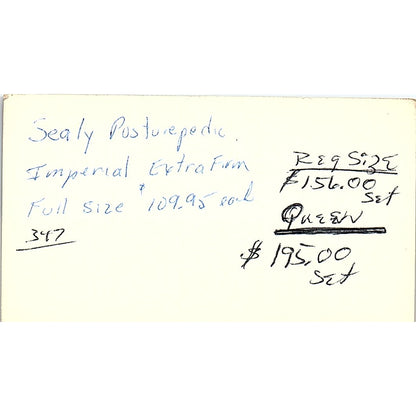 Sealy Posturepedic.
Imperial Extra Firm
Full size $109.95 each
347
Reg Size
$156.00
Set
Queen
$195.00
Set